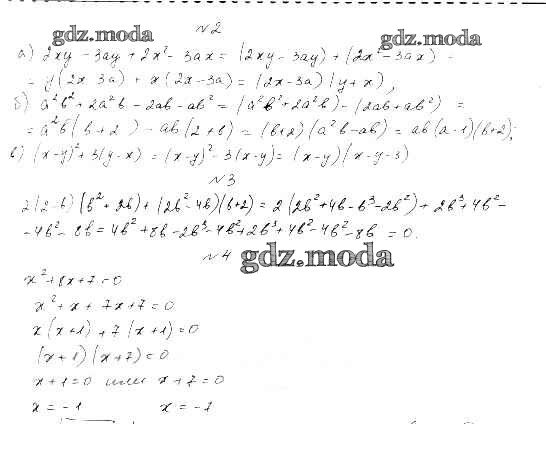 №2
gdz.moda
gdz.moda
а) 2xy - 3ay + 2x² - 3ax = (2xy - 3ay) + (2x² - 3ax) =
= y(2x 3a) + x(2x - 3a) = (2x - 3a)(y + x),
б) a²b² + 2a²b - 2ab - ab² = (a²b² + 2a²b) - (2ab + ab²) =
= a²b(b + 2) - ab(2 + b) = (b+2)(a²b - ab) = ab(a-1)(b+2);
в) (x-y)² + 3(y-x) = (x-y)² - 3(x-y) = (x-y)(x-y-3)
№3
2(2-b)(b² + 2b) + (2b² - 4b)(b+2) = 2(2b² + 4b - b³ - 2b²) + 2b³ + 4b² -
- 4b² - 8b = 4b² + 8b - 2b³ - 4b² + 2b³ + 4b² - 4b² - 8b = 0.
№4
gdz.moda
x² + 8x + 7 = 0
x² + x + 7x + 7 = 0
x(x+1) + 7(x+1) = 0
(x+1)(x+7) = 0
x + 1 = 0 или x + 7 = 0
x = -1 x = -7